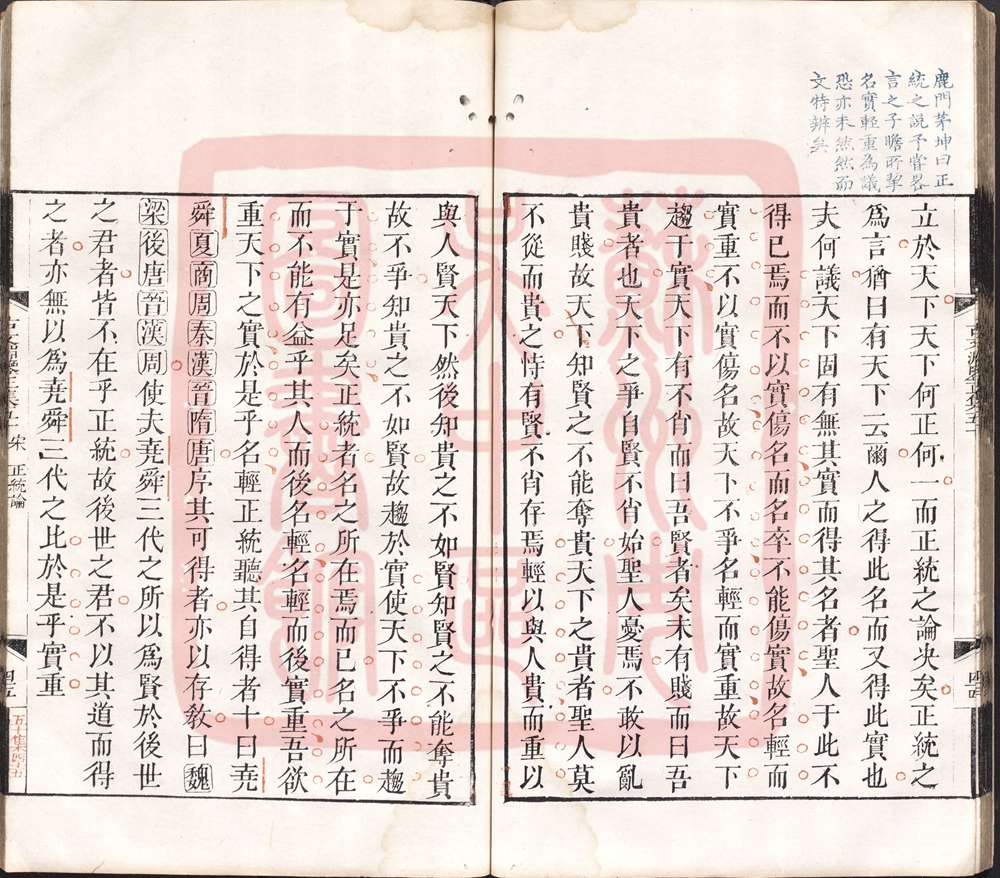 鹿門茅坤曰正
統之說予嘗畧
言之子瞻所挈
名實輕重為議
恐亦未然然而
文特辨矣
立於天下天下何正何一而正統之論决矣正統之
爲言猶曰有天下云爾人之得此名而又得此實也
夫何議天下固有無其實而得其名者聖人于此不
得已焉而不以實傷名而名卒不能傷實故名輕而
實重不以實傷名故天下不爭名輕而實重故天下
趨于實天下有不肖而曰吾賢者矣未有賤而曰吾
貴者也天下之爭自賢不肖始聖人憂焉不敢以亂
貴賤故天下知賢之不能奪貴天下之貴者聖人莫
不從而貴之恃有賢不肖存焉輕以與人貴而重以
與人賢天下然後知貴之不如賢知賢之不能奪貴
故不爭知貴之不如賢故趨於實使天下不爭而趨
于實是亦足矣正統者名之所在焉而已名之所在
而不能有益乎其人而後名輕名輕而後實重吾欲
重天下之實於是乎名輕正統聽其自得者十曰堯
舜夏商周秦漢晉隋唐序其可得者亦以存敎曰魏
梁後唐晉漢周使夫堯舜三代之所以爲賢於後世
之君者皆不在乎正統故後世之君不以其道而得
之者亦無以爲堯舜三代之比於是乎實重
宋 正統論